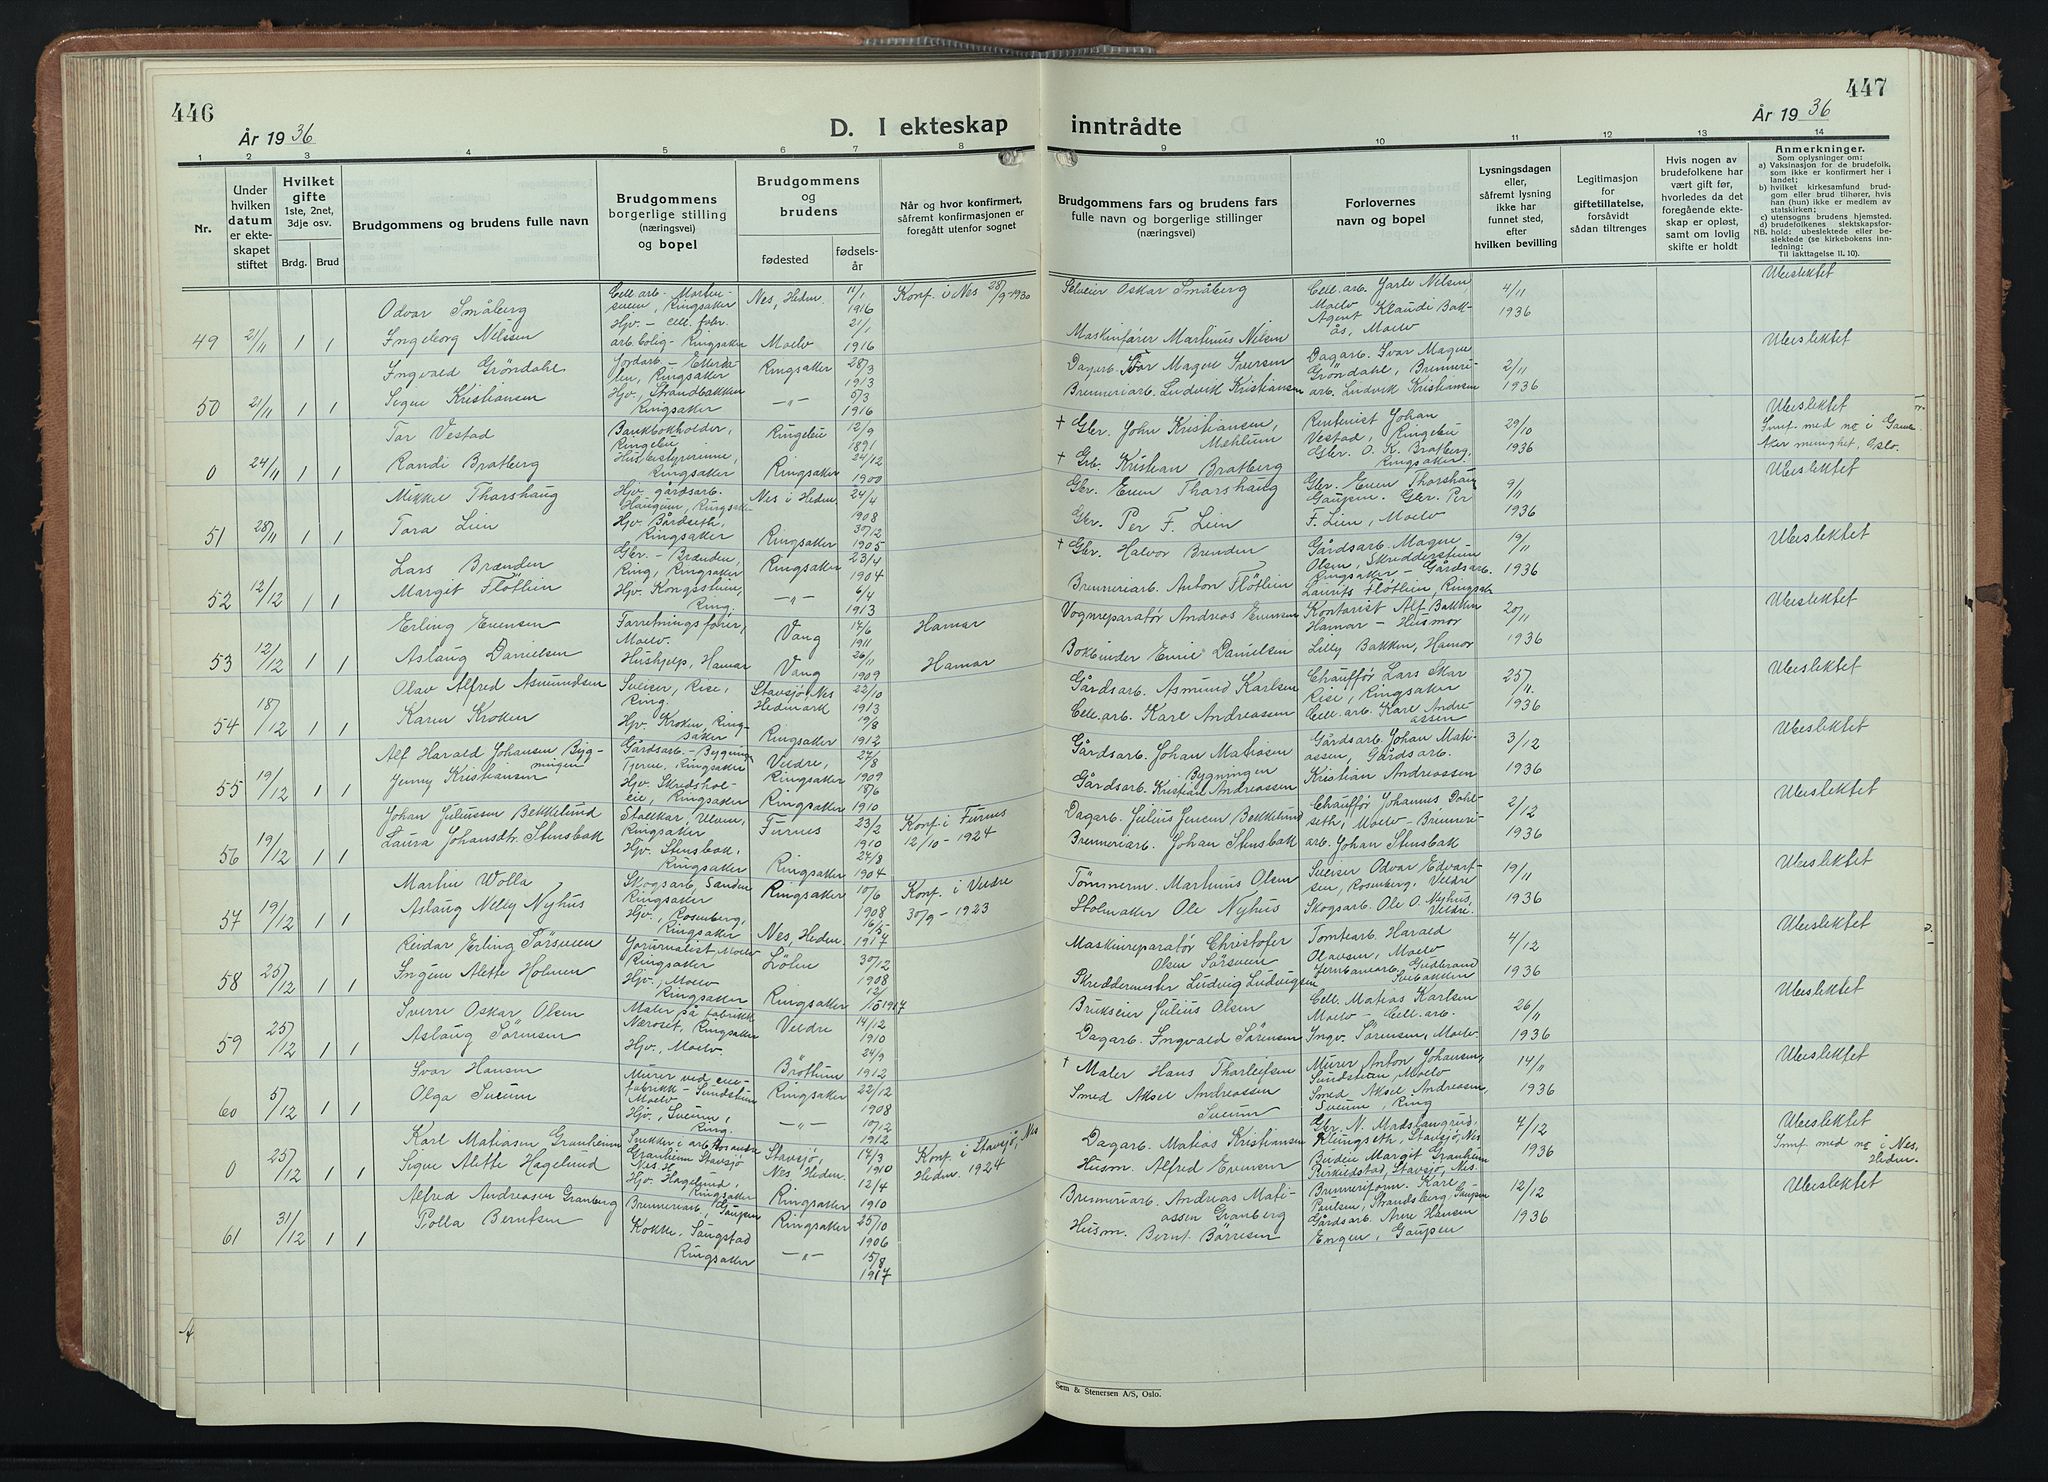 446
År 1936
D. I ekteskap
1
2
3
4
5
6
7
8
Nr.
Under hvilken datum er ekteskapet stiftet
Hvilket gifte
1ste, 2net, 3dje osv.
Brdg.
Brud
Brudgommens og brudens fulle navn
Brudgommens borgerlige stilling (næringsvei) og bopel
Brudgommens og brudens
fødested
fødselsår
Når og hvor konfirmert, såfremt konfirmasjonen er foregått utenfor sognet
49 21/11 1 1
Odvar Småberg
Ingeborg Nilssen
Nes, Hedm. 11/1 1916
Konf. i Nes 28/9-1930
Hjv. - cell. fabr. arb. bolig - Ringsaker
Moelv 21/1 1916
50 21/11 1 1
Ingvald Gröndahl
Signe Kristiansen
Ringsaker 28/3 1913
Hjv., Strandbakken Ringsaker
-"- 5/3 1916
0 24/11 1 1
Tor Vestad
Randi Bratberg
Bankbokholder, Ringebu
Ringebu 12/9 1891
Husbestyrerinne, Ringsaker
Ringsaker 24/12 1900
51 28/11 1 1
Mikkel Thorshaug
Tora Lien
Nes i Hedm. 24/4 1908
Hjv. Bårdseth, Ringsaker
Ringsaker 30/12 1905
52 12/12 1 1
Lars Brænden
Margit Flötlien
Gbr. - Brænden, Ring, Ringsaker
Ringsaker 23/4 1904
Hjv. Kongsstuen, Ring.
-"- 6/4 1913
53 12/12 1 1
Erling Evensen
Aslaug Danielsen
Forretningsfører, Moelv.
Vang 14/6 1911
Hamar
Hushjelp, Hamar
Vang 26/11 1909
Hamar
54 18/12 1 1
Olav Alfred Asmundsen
Karen Kroken
Sveiser, Rise, Ring.
Stavsjø, Nes Hedmark 22/10 1913
Hjv. Kroken, Ringsaker
Ringsaker 19/8 1912
55 19/12 1 1
Alf Harald Johansen Bygningen
Jenny Kristiansen
Veldre, Ringsaker 27/8 1909
Hjv. Skredsholeie, Ringsaker
Ringsaker 18/6 1910
56 19/12 1 1
Johan Juliussen Bekkelund
Laura Johansdtr. Stensbak
Furnes 23/2 1910
Konf. i Furnes 12/10-1924
Hjv. Stensbak, Ringsaker
Ringsaker 24/8 1904
57 19/12 1 1
Martin Wolla
Aslaug Nelly Nyhus
Skogsarb. Sanden Ringsaker
Ringsaker 10/6 1908
Konf. i Veldre 30/9-1923
Hjv., Rosenberg, Ringsaker
Nes, Hedm. 16/5 1917
58 25/12 1 1
Reidar Erling Sørsveen
Ingun Alette Holmen
Journalist, Moelv Ringsaker
Löten 30/12 1908
Hjv., Moelv Ringsaker
Ringsaker 12/5 1917
59 25/12 1 1
Sverre Oskar Olsen
Aslaug Sörensen
Maler på fabrikk Næroset, Ringsaker
Veldre 14/12 1910
Hjv., Moelv.
Bröttum 24/9 1912
60 5/12 1 1
Ivar Hansen
Olga Sveum
Ringsaker 22/12 1908
Hjv., Sveum, Ring.
-"- 10/12 1912
0 25/12 1 1
Karl Matiasen Granheim
Signe Alette Hagelund
Stavsjö, Nes, Hedm. 14/3 1910
Konf. i Stavsjö, Nes Hedm. 1924
Hjv. Hagelund, Ringsaker
Ringsaker 12/4 1910
61 31/12 1 1
Alfred Andreasen Granberg
Polla Berntsen
Brenneriarb., Gaupen
Ringsaker 25/10 1906
Kokke, Sangstad Ringsaker
-"- 15/8 1917
447
År 1936
inntrådte
9
10
11
12
13
14
Brudgommens fars og brudens fars fulle navn og borgerlige stillinger (næringsvei)
Forlovernes navn og bopel
Lysningsdagen eller, såfremt lysning ikke har funnet sted, efter hvilken bevilling
Legitimasjon for giftetillatelse, forsåvidt sådan tiltrenges
Hvis nogen av brudefolkene har vært gift før, hvorledes da det foregående ekteskap er opløst, samt om lovlig skifte er holdt
Anmerkninger.
Som oplysninger om:
a) Vaksinasjon for de brudefolk, som ikke er konfirmert her i landet;
b) hvilket kirkesamfund brudgom eller brud tilhører, hvis han (hun) ikke er medlem av statskirken;
c) utensogns brudens hjemsted.
d) brudefolkenes slektskapsforhold: ubeslektede eller beslektede (se kirkebokens innledning;
NB. Til iakttagelse II. 10).
Selveier Oskar Småberg
Maskinfører Martinus Nilsen
Cell. arb. Jarle Nilsen, Moelv
Agent Klaudi Bakås, Moelv
4/11 1936
Ubeslektet
Brenneriarb. Ludvik Kristiansen
Dagarb. Ivar Magne Gröndahl, Brenneriarb. Ludvik Kristiansen
2/11 1936
Ubeslektet
+ Gbr. John Kristiansen, Mehlum
+ Gbr. Kristian Bratberg
Rentenist Johan Vestad, Ringebu
Gbr. O. K. Bratberg, Ringsaker
29/10 1936
Ubeslektet
Innf. med no i Gamle Aker menighet, Oslo.
Gbr. Even Thorshaug
Gbr. Per F. Lien
Gbr. Even Thorshaug Gaupen. Gbr. Per F. Lien, Moelv
9/11 1936
Ubeslektet
+ Gbr. Halvor Brenden
Brenneriarb. Anton Flötlien
Gårdsarb. Magne Olsen, Skredderstuen Ringsaker - Gårdsarb. Laurits Flötlien, Ringsaker
19/11 1936
Ubeslektet
Vognreparatør Andreas Evensen
Bokbinder Emil Danielsen
Kontorist Alf Bakken Hamar - Husmor Lilly Bakken, Hamar
20/11 1936
Ubeslektet
Gårdsarb. Asmund Karlsen
Cell. arb. Karl Andreassen
Chauffør Lars Skar Rise, Ringsaker
Cell. arb. Karl Andreassen
25/11 1936
Ubeslektet
Gårdsarb. Johan Matiasen Bygningen
Gårdsarb. Kristian Andreassen
Gårdsarb. Johan Matiassen, Gårdsarb. Kristian Andreassen
3/12 1936
Ubeslektet
Dagarb. Julius Jensen Bekkelund
Brenneriarb. Johan Stensbak
Chauffør Johannes Dahlseth, Moelv - Brenneriarb. Johan Stensbak
2/12 1936
Ubeslektet
Tömmerm. Martinus Olsen
Stolmaker Ole Nyhus
Sveiser Odvar Edvartsen, Rosenberg, Veldre
Skogsarb. Ole O. Nyhus, Veldre.
19/11 1936
Ubeslektet
Maskinreparatør Christofer Olsen Sørsveen
Skreddermester Ludvig Ludvigsen
Tomtearb. Harald Olavsen, Moelv
Jernbanearb. Gudbrand Svebakken
4/12 1936
Ubeslektet
Brukseier Julius Olsen
Dagarb. Ingvald Sørensen
Cell. Matias Karlsen Moelv - Cell. arb. Ingv. Sørensen, Moelv.
26/11 1936
Ubeslektet
+ Maler Hans Thorleifsen
Smed Aksel Andreassen Sveum
Murer Anton Johansen, Sundstuen, Moelv
Smed Aksel Andreassen, Sveum, Ring
14/11 1936
Ubeslektet
Dagarb. Matias Kristiansen
Husm. Alfred Evensen
Budeie Margit Granheim
4/12 1936
Ubeslektet
Innf. med no i Nes, Hedm.
Brenneriarb. Andreas Matiassen Granberg
Husm. Bernt Börresen
Brenneriform. Karl Paulsen, Strandsberg, Gaupen
Gårdsarb. Arne Hansen Engen, Gaupen
12/12 1936
Ubeslektet
Sem & Stenersen A/S, Oslo.